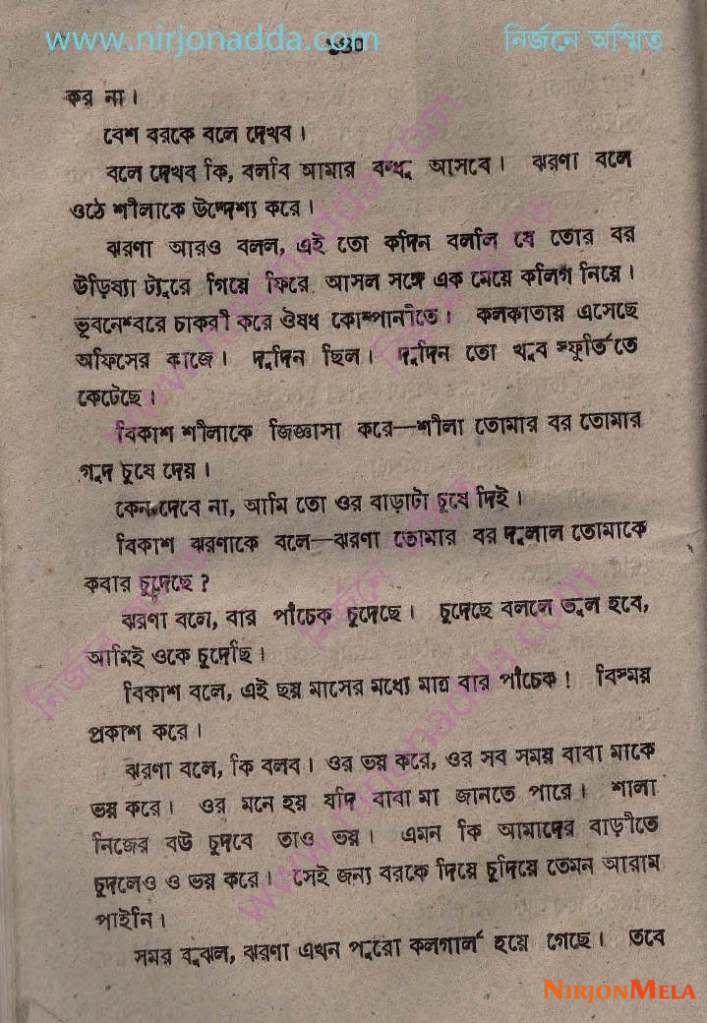 www.nirjonadda.com
নির্জনে অস্মিত
কর না।
বেশ বরকে বলে দেখব।
বলে দেখব কি, বলবি আমার বন্ধু আসবে। ঝরণা বলে
ওঠে শীলাকে উদ্দেশ্য করে।
ঝরণা আরও বলল, এই তো কদিন বললি যে তোর বর
উড়িষ্যা ট্যুরে গিয়ে ফিরে আসল সঙ্গে এক মেয়ে কলিগ নিয়ে।
ভূবনেশ্বরে চাকরী করে ঔষধ কোম্পানীতে। কলকাতায় এসেছে
অফিসের কাজে। দুদিন ছিল। দুদিন তো খুব স্ফূর্তিতে
কেটেছে।
বিকাশ শীলাকে জিজ্ঞাসা করে—শীলা তোমার বর তোমার
গুদ চুষে দেয়।
কেন দেবে না, আমি তো ওর বাড়াটা চুষে দিই।
বিকাশ ঝরণাকে বলে—ঝরণা তোমার বর দুলাল তোমাকে
কবার চুদেছে?
ঝরণা বলে, বার পাঁচেক চুদেছে। চুদেছে বললে ভুল হবে,
আমিই ওকে চুদেছি।
বিকাশ বলে, এই ছয় মাসের মধ্যে মাত্র বার পাঁচেক! বিস্ময়
প্রকাশ করে।
ঝরণা বলে, কি বলব। ওর ভয় করে, ওর সব সময় বাবা মাকে
ভয় করে। ওর মনে হয় যদি বাবা মা জানতে পারে। শালা
নিজের বউ চুদবে তাও ভয়। এমন কি আমাদের বাড়ীতে
চুদলেও ও ভয় করে। সেই জন্য বরকে দিয়ে চুদিয়ে তেমন আরাম
পাইনি।
সমর বুঝল, ঝরণা এখন পুরো কলগার্ল হয়ে গেছে। তবে
NIRJONMELA